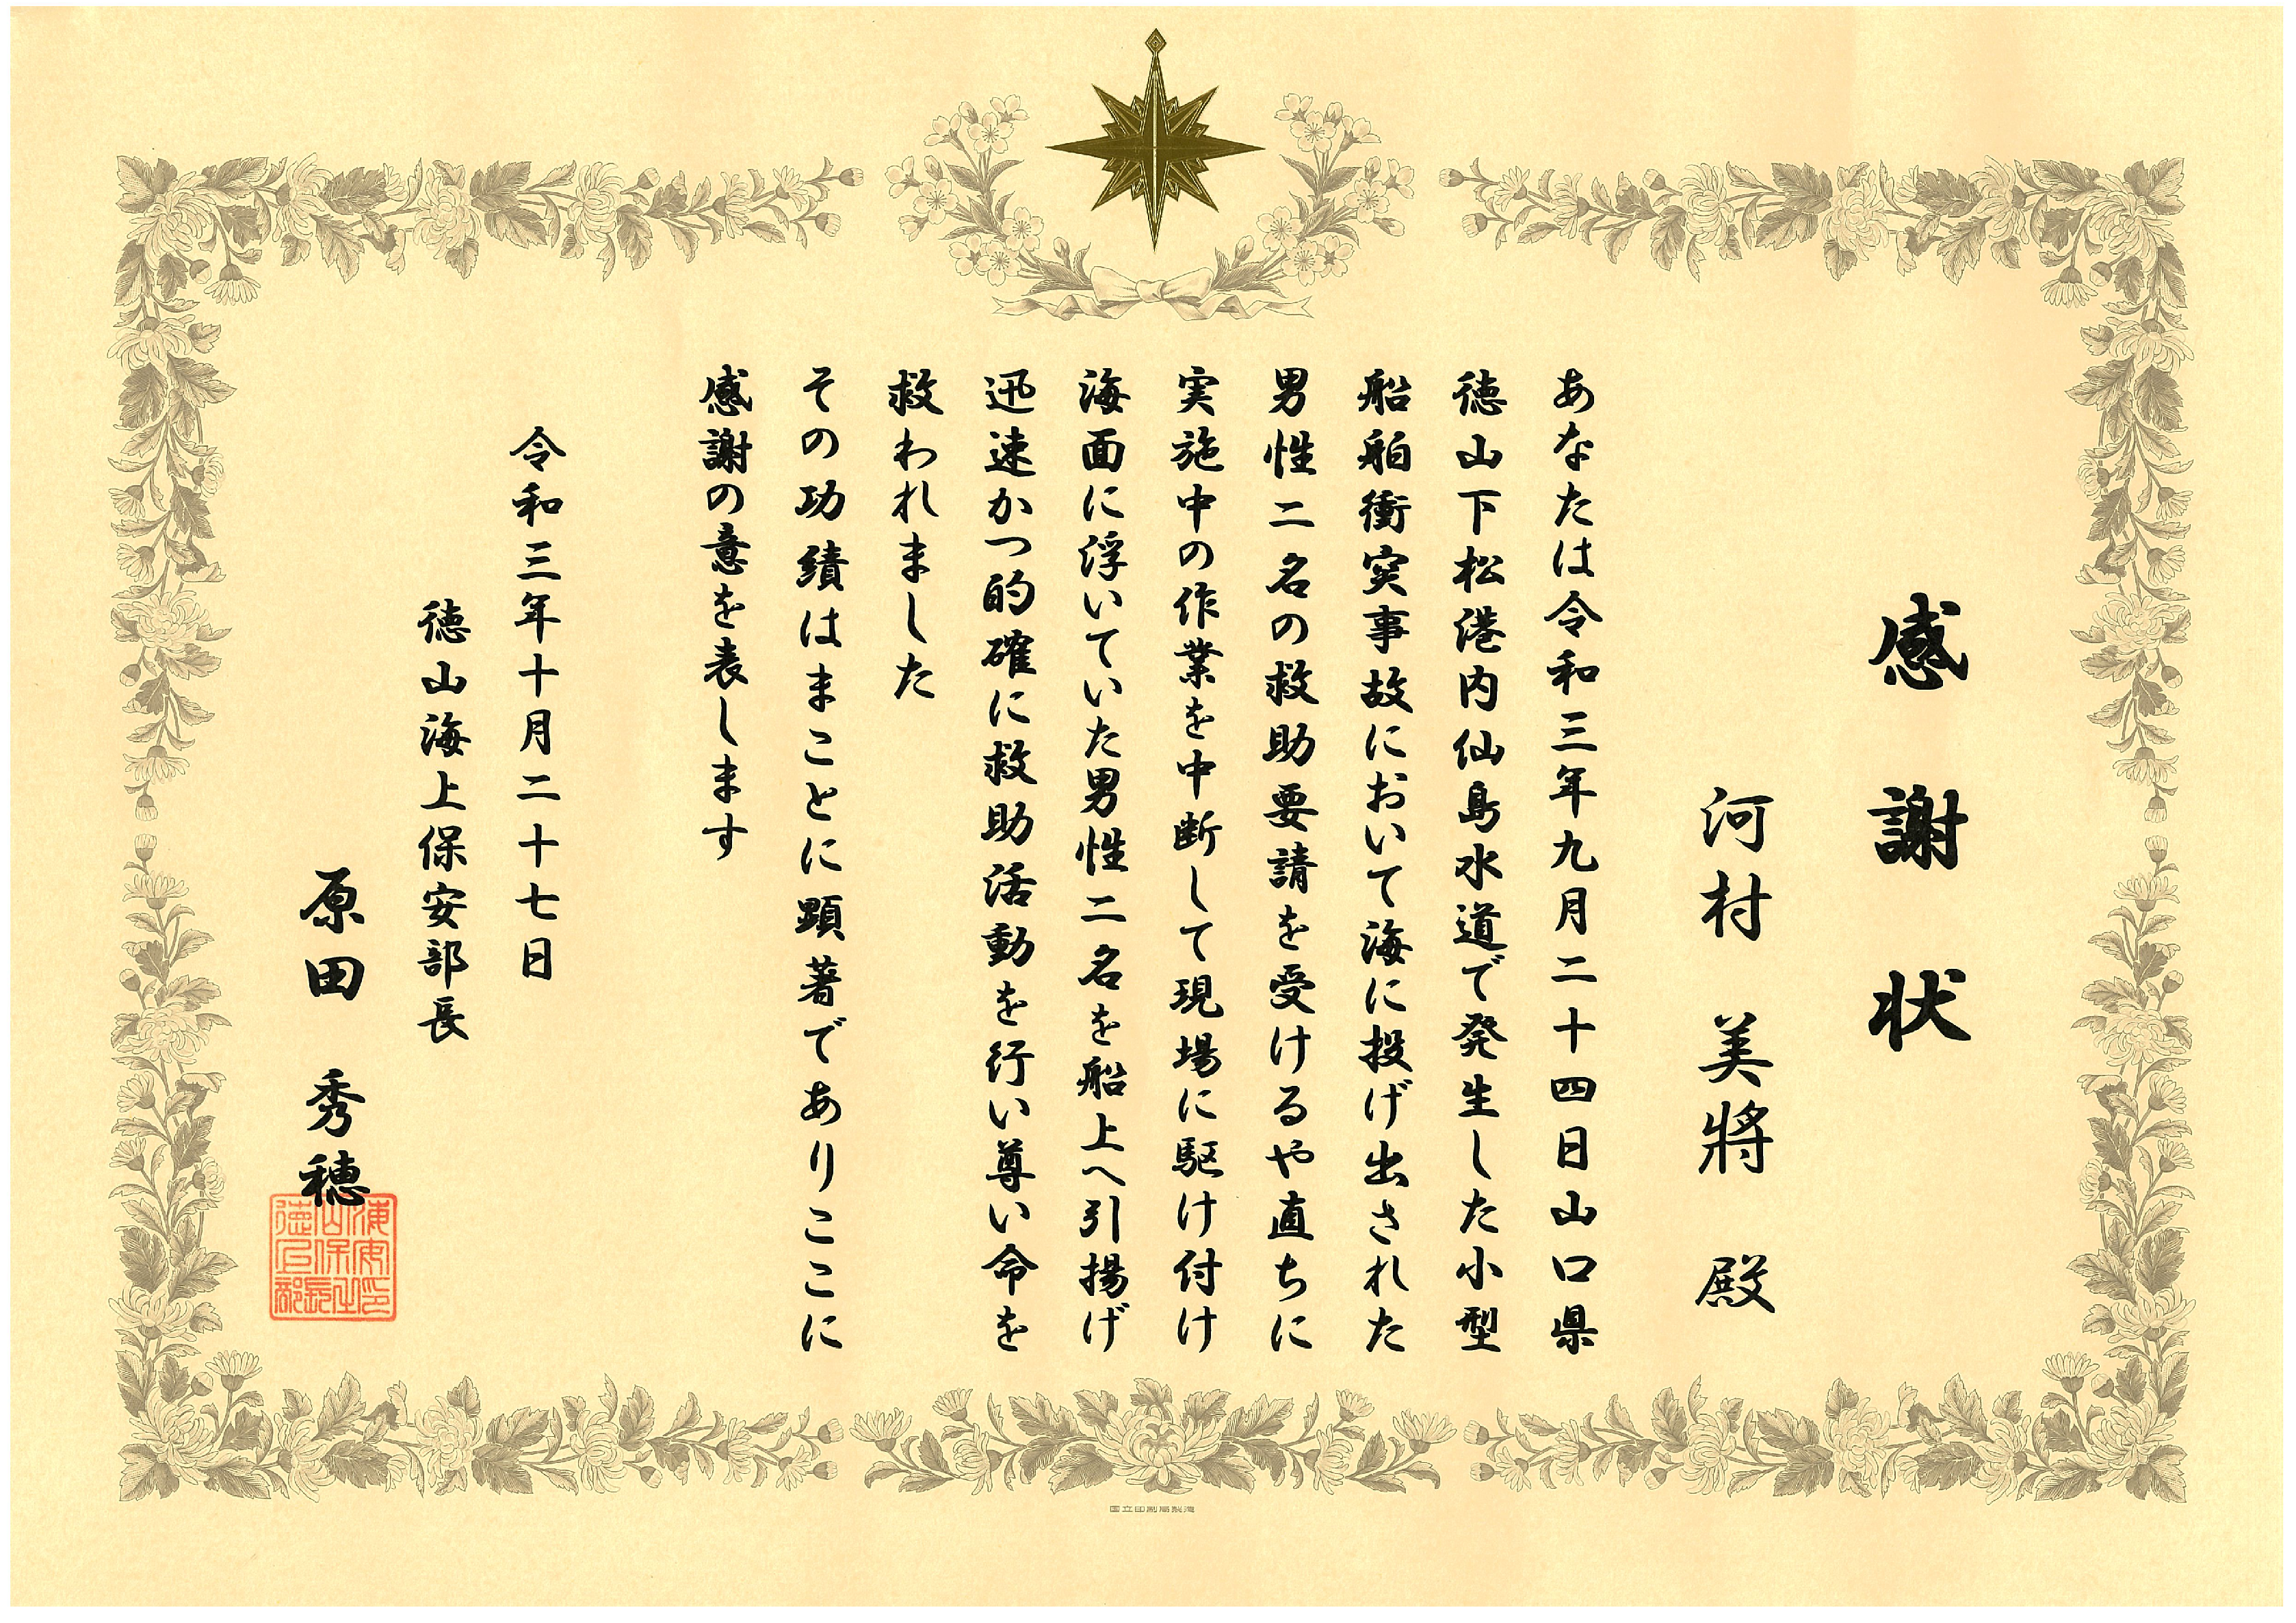 感謝状
河村 美將 殿
あなたは令和三年九月二十四日山口県
徳山下松港内仙島水道で発生した小型
船舶衝突事故において海に投げ出された
男性二名の救助要請を受けるや直ちに
実施中の作業を中断して現場に駆け付け
海面に浮いていた男性二名を船上へ引揚げ
迅速かつ的確に救助活動を行い尊い命を
救われました
その功績はまことに顕著でありここに
感謝の意を表します
令和三年十月二十七日
徳山海上保安部長
原田 秀穂
国立印刷局製造